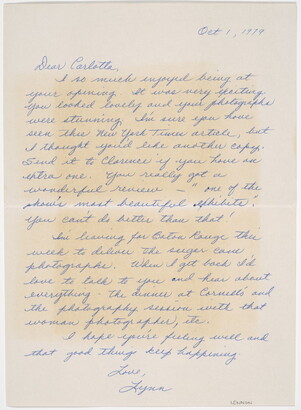 Oct 1, 1979
Dear Carlotta,
I so much enjoyed being at
your opening. It was very exciting
you looked lovely and your photographs
were stunning. I'm sure you have
seen this New York Times article, but
I thought you'd like another copy.
Send it to Clarence if you have an
extra one. You really got a
wonderful review - "one of the
show's most beautiful exhibits."
You can't do better than that!
I'm leaving for Baton Rouge this
week to deliver the sugar cane
photographs. When I get back I'd
love to talk to you and hear about
everything - the dinner at Cornell's and
the photography session with that
woman photographer, etc.
I hope you're feeling well and
that good things keep happening.
Love,
Lynn